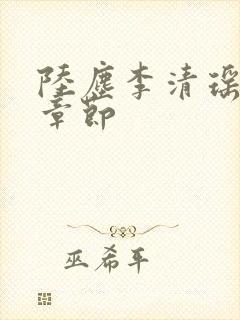 陸塵李清瑤
章節
巫希平